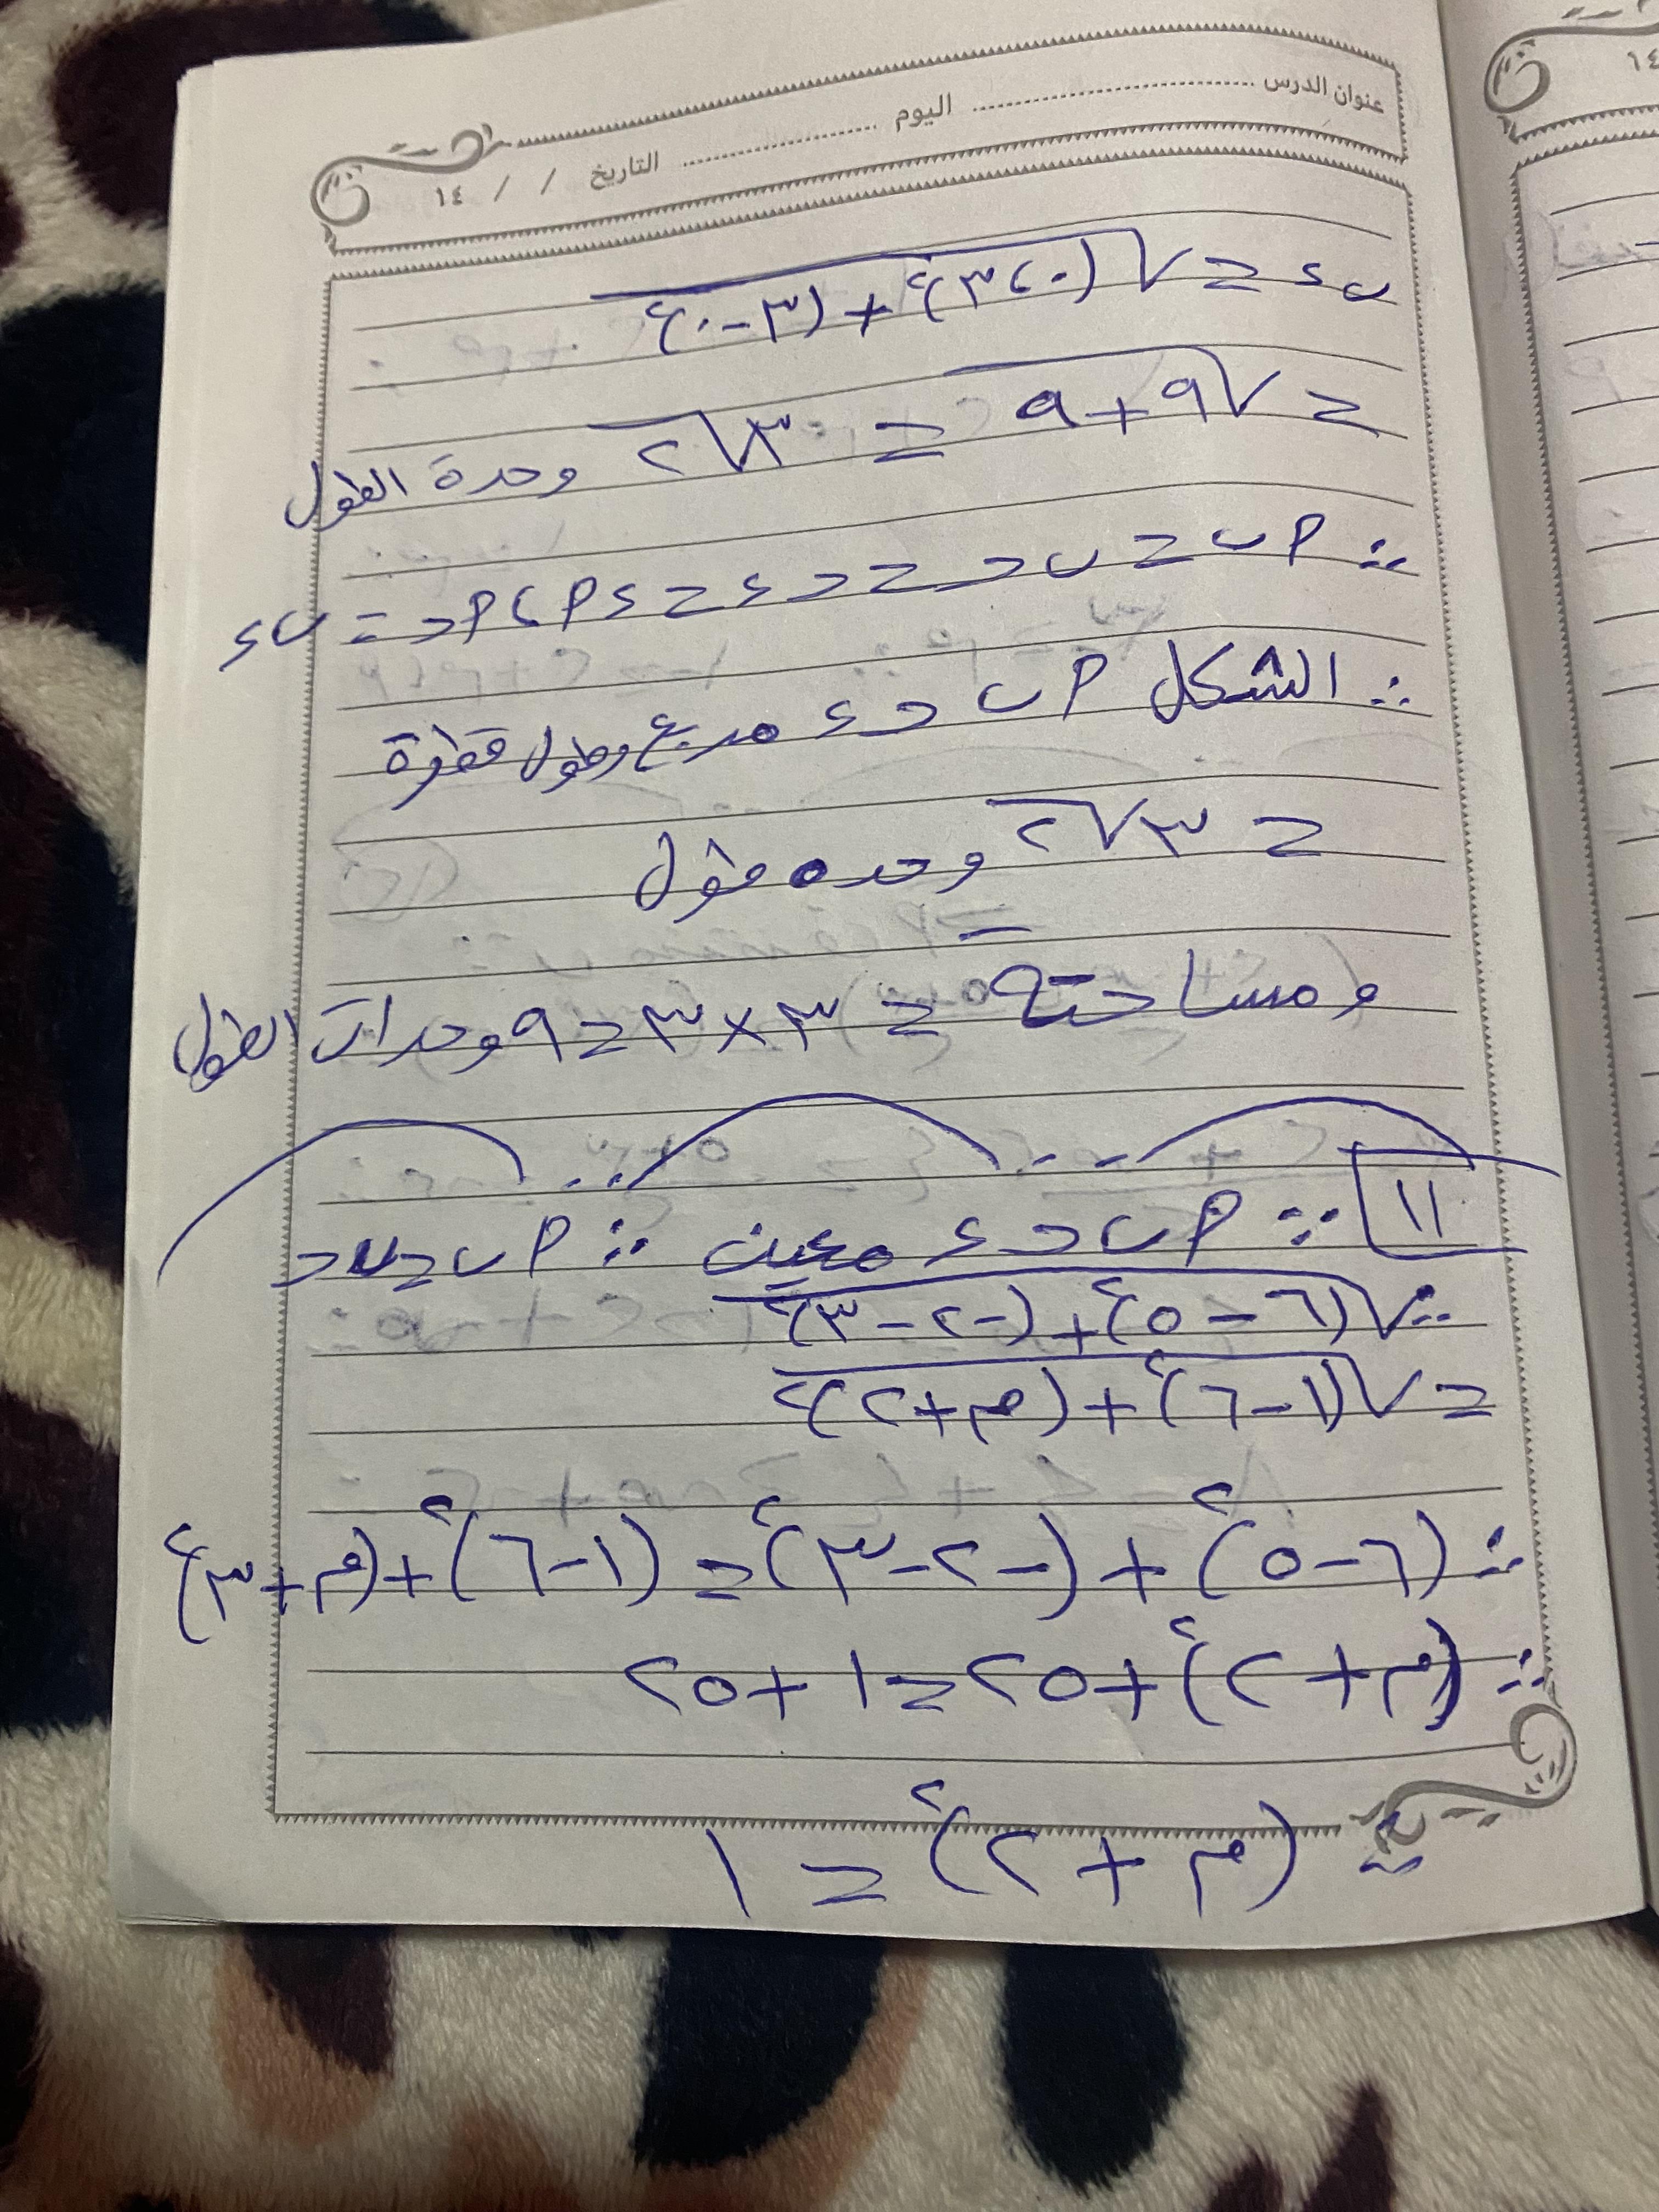 عنوان الدرس ........ اليوم ........
التاريخ / / ١٤
ب ء = √(٠،٣)٢ + (٣-٠)٢
= √٩+٩ = ٣√٢ وحدة الطول
∵ أ ب = ب ح = ح ء = ء أ ، أ ح = ب ء
∴ الشكل أ ب ح ء مربع وطول قطرة
= ٣√٢ وحده طول
ومساحته = ٣×٣=٩ وحدات الطول
١١ ∵ أ ب ح ء معين ∴ أ ب = ب ح
∴ √(٦-٥)٢+(-٢-٣)٢
= √(١-٦)٢+(م+٢)٢
∴ (٦-٥)٢+(-٢-٣)٢=(١-٦)٢+(م+٣)٢
∴ (م+٢)٢+٢٥=١+٢٥
∴ (م+٢)٢=١